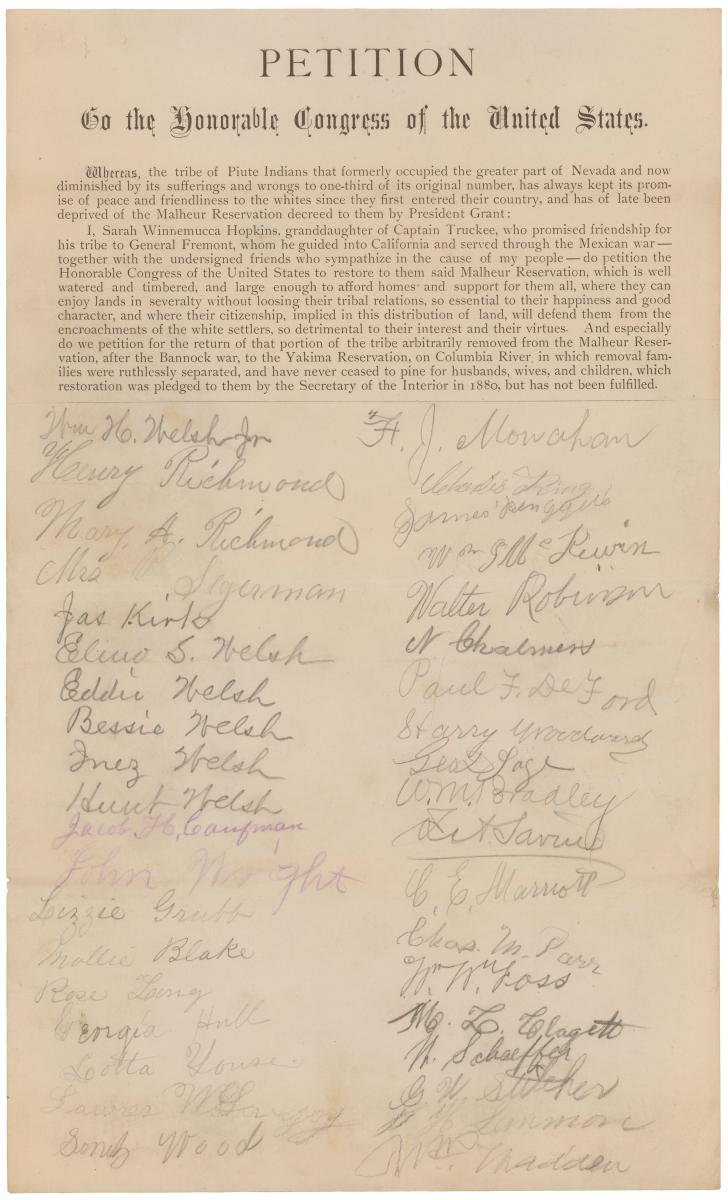 PETITION
To the Honorable Congress of the United States.
Whereas, the tribe of Piute Indians that formerly occupied the greater part of Nevada and now
diminished by its sufferings and wrongs to one-third of its original number, has always kept its prom-
ise of peace and friendliness to the whites since they first entered their country, and has of late been
deprived of the Malheur Reservation decreed to them by President Grant:
I, Sarah Winnemucca Hopkins, granddaughter of Captain Truckee, who promised friendship for
his tribe to General Fremont, whom he guided into California and served through the Mexican war—
together with the undersigned friends who sympathize in the cause of my people—do petition the
Honorable Congress of the United States to restore to them said Malheur Reservation, which is well
watered and timbered, and large enough to afford homes and support for them all, where they can
enjoy lands in severalty without loosing their tribal relations, so essential to their happiness and good
character, and where their citizenship, implied in this distribution of land, will defend them from the
encroachments of the white settlers, so detrimental to their interest and their virtues. And especially
do we petition for the return of that portion of the tribe arbitrarily removed from the Malheur Reser-
vation, after the Bannock war, to the Yakima Reservation, on Columbia River, in which removal fam-
ilies were ruthlessly separated, and have never ceased to pine for husbands, wives, and children, which
restoration was pledged to them by the Secretary of the Interior in 1880, but has not been fulfilled.
Wm H. Welsh Jr
Henry Richmond
Mary A. Richmond
Mrs Segerman
Jas Kirk
Elino S. Welsh
Eddie Welsh
Bessie Welsh
Inez Welsh
Hunt Welsh
Jacob H. Caufman
John Wright
Lizzie Grubb
Mollie Blake
Rose Lang
Georgia Hull
Lotta House
Wood
H. J. Monahan
James
Wm Mc Kewin
Walter Robinson
N Chalmers
Paul F. DeFord
Harry Woodward
Geo Page
W. M. Bradley
C. E. Marriott
Chas. M. Parr
W. Foss
M. L. Clagett
N. Schaeffer
G W.
Lemmon
Wm. Madden